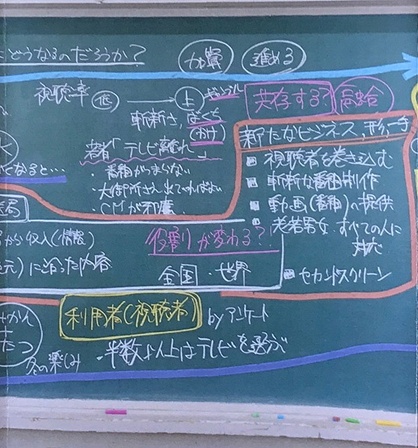 どうなるのだろうか?
加賢 進める
視聴率 低 → 上
斬新さ、ばくち
共存する? 融合
若者「テレビ離れ」
新たなビジネス、形、手
・番組がつまらない
・大御所さん出ていればよい
・CMが邪魔
くなると…
■視聴者を巻き込む
■斬新な番組制作
■動画(番組)の提供
■老若男女、すべての人に
■セカンドスクリーン
から収入(情報)
に沿った内容
役割が変わる?
全国・世界
利用者(視聴者) byアンケート
・半数以上はテレビを選ぶ